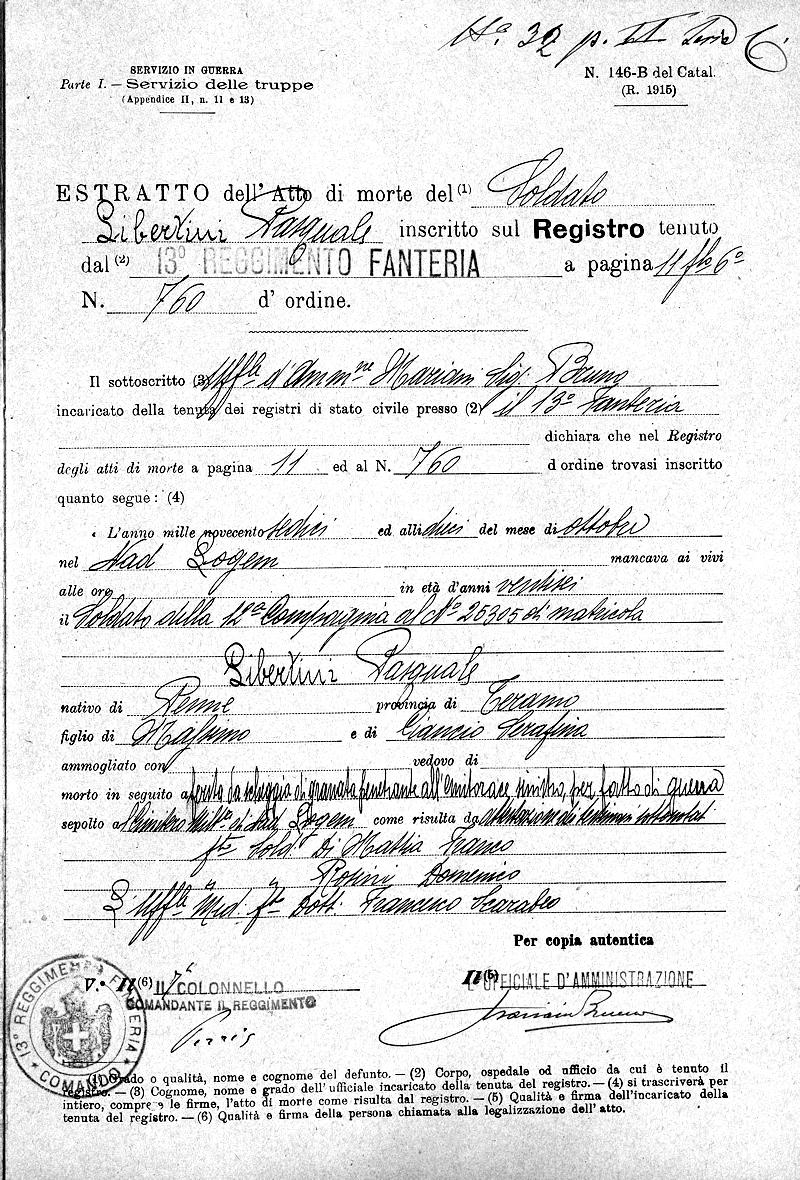 N.º 32 p. II Serie C
SERVIZIO IN GUERRA
Parte I. — Servizio delle truppe
(Appendice II, n. 11 e 13)
N. 146-B del Catal.
(R. 1915)
ESTRATTO dell' Atto di morte del (1) Soldato
Libertini Pasquale inscritto sul Registro tenuto
dal (2) 13º REGGIMENTO FANTERIA a pagina 11
N. 760 d' ordine.
Il sottoscritto (3) Uffle d'Ammne Mariani Sig. Bruno
incaricato della tenuta dei registri di stato civile presso (2) il 13º Fanteria
dichiara che nel Registro
degli atti di morte a pagina 11 ed al N. 760 d ordine trovasi inscritto
quanto segue: (4)
« L'anno mille novecento sedici ed alli dieci del mese di ottobre
nel Nad Logem mancava ai vivi
alle ore in età d'anni ventisei
il Soldato della 12ª Compagnia al Nº 25305 di matricola
Libertini Pasquale
nativo di Penne provincia di Teramo
figlio di Massimo e di Ciancio Serafina
ammogliato con vedovo di
morto in seguito a ferita da scheggia di granata penetrante all'emitorace sinistro, per fatto di guerra
sepolto a Cimitero Milre di Nad Logem come risulta da attestazione dei testimoni sottonotati
fto Sold. Di Mattia Franco
" " Rosini Domenico
L'Uffle Med. fto Dott. Francesco Scarabeo
Per copia autentica
V.º Il (6) IL COLONNELLO
COMANDANTE IL REGGIMENTO
Il (5) L'UFFICIALE D'AMMINISTRAZIONE
Mariani Bruno
13º REGGIMENTO FANTERIA
COMANDO
(1) Grado o qualità, nome e cognome del defunto. — (2) Corpo, ospedale od ufficio da cui è tenuto il
registro. — (3) Cognome, nome e grado dell' ufficiale incaricato della tenuta del registro. — (4) si trascriverà per
intiero, comprese le firme, l'atto di morte come risulta dal registro. — (5) Qualità e firma dell'incaricato della
tenuta del registro. — (6) Qualità e firma della persona chiamata alla legalizzazione dell' atto.